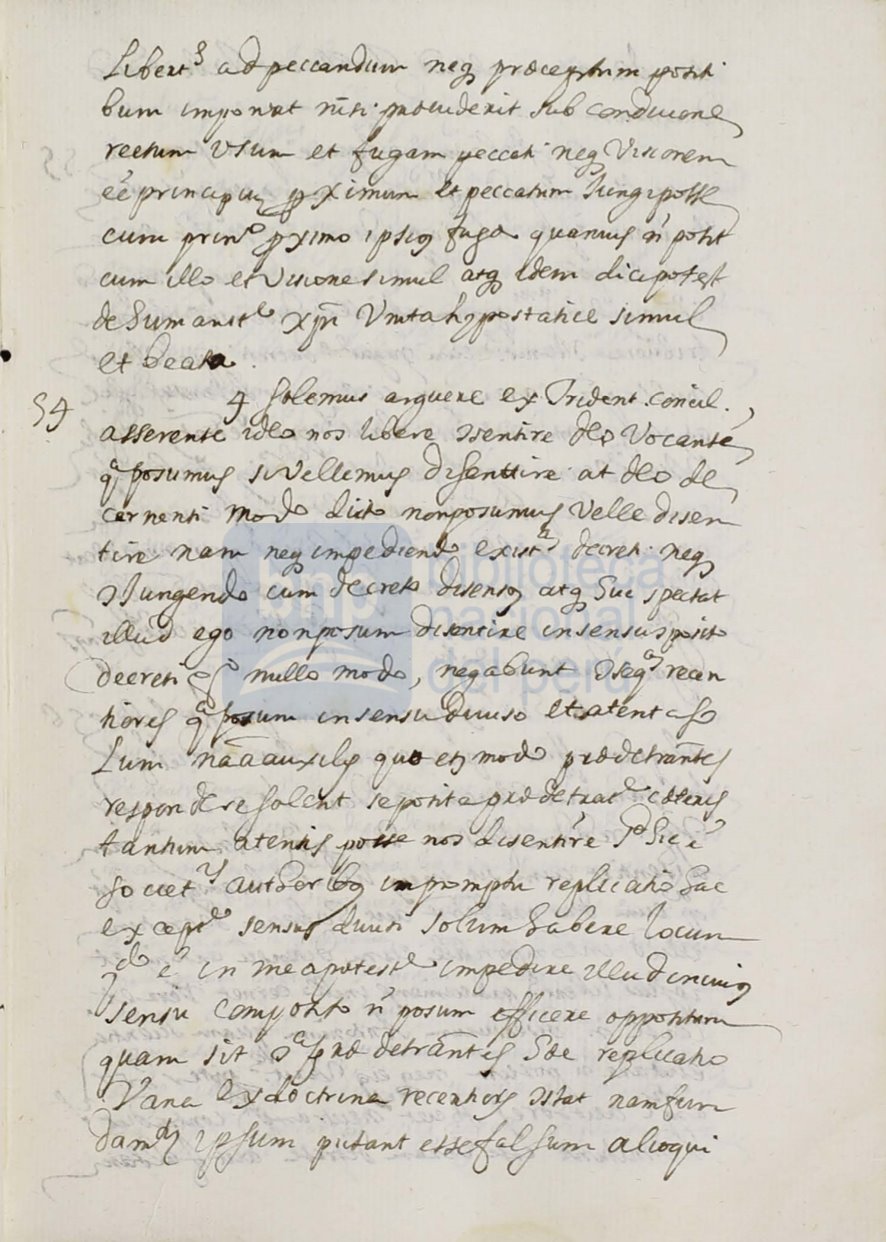 libert.s ad peccandum neq præceptum positi
bum imponat nisi præuiderit sub condicione
rectum usum et fugam peccati neq Visionem
eê principiũ proximum et peccatum iungi posse
cum prin.o proximo ipsius fuga quamuis ñ potit
cum illo et Visione simul atq idem dici potest
de humanit.e xpi Unita hypostatice simul
et beata.
54 4 Solemus arguere ex Trident. concil.
asserente ideo nos libere Ↄsentire deo Vocante
q posumus si Vellemus disenttire at deo de
cernenti modo dicto non posumus Velle disen
tire nam neq impediendo exist.a decreti neq
Ↄiungendo cum decreto disensũ atq huc spectat
illud ego non posum disentire in sensu Ↄposito
decreti nullo modo, negabunt Ↄseq.a recen
tiores q posum in sensu diuiso et atenta so
lum nãa auxilij quo etj modo prædetrãntes
respondere solent se posita prædetrat.e cæteris
tantum atentis posse nos disentire sed hic ê
societ.s authoribus in promptu replicatio hac
except.e sensus diuisi solum habere locum
q.do ê in mea potest.e impedire illud in cuius
sensu composito ñ posum efficere oppositum
quam sit Ↄ.a prædetrãntes hæc replicatio
Vana ex doctrina recentioris Ↄstat nam fun
dam.tũ ipsum putant esse falsum alioqui
biblioteca
nacional
del perú
bnp